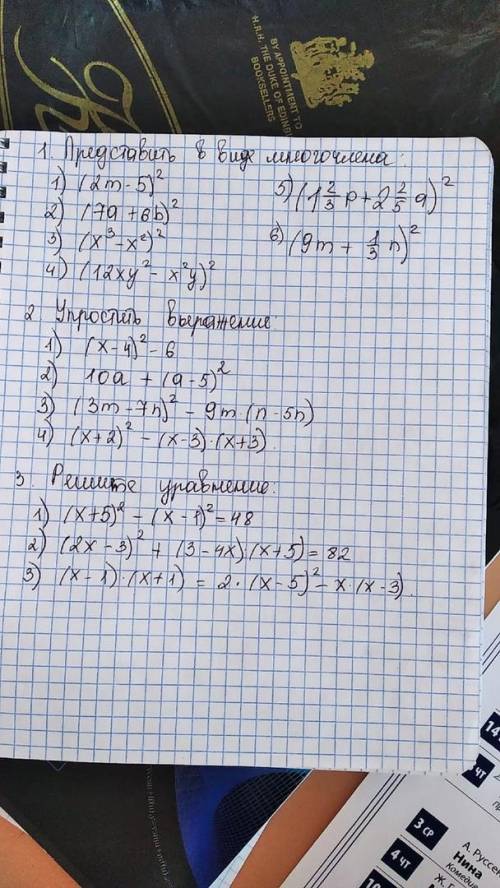 BY APPOINTMENT TO
H.R.H. THE DUKE OF EDINBURGH
BOOKSELLERS
1. Представить в виде многочлена:
1) (2m-5)²
2) (7a+6b)²
3) (x³-x²)²
4) (12xy²-x²y)²
5) (1 2/3 p+2 2/5 q)²
6) (9m+1/3 n)²
2 Упростить выражение
1) (x-4)²-6
2) 10a+(a-5)²
3) (3m-7n)²-9m·(n-5n)
4) (x+2)²-(x-3)·(x+3).
3. Решите уравнение.
1) (x+5)²-(x-1)²=48
2) (2x-3)²+(3-4x)·(x+5)=82
3) (x-1)·(x+1)=2·(x-5)²-x·(x-3).
14
ЧТ
3 СР
4 ЧТ
А. Руссе
Нина
Комедия